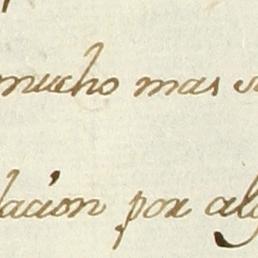 mucho mas
lacion por